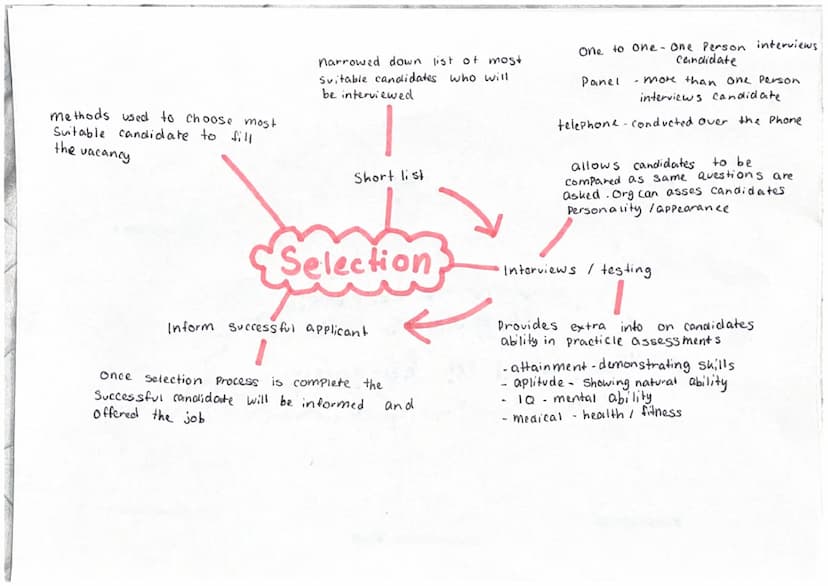 methods used to choose most
suitable candidate to fill
the vacancy
narrowed down list of most
suitable candidates who will
be interviewed
Short list
One to one - one person interviews
candidate
Panel - more than one person
interviews candidate
telephone - conducted over the phone
allows candidates to be
compared as same questions are
asked. Org can asses candidates
personality / appearance
Selection
Interviews / testing
Provides extra info on candidates
ability in practicle assessments
- attainment - demonstrating skills
- aptitude - showing natural ability
- IQ - mental ability
- medical - health / fitness
Inform successful applicant
Once selection process is complete the
successful candidate will be informed and
offered the job